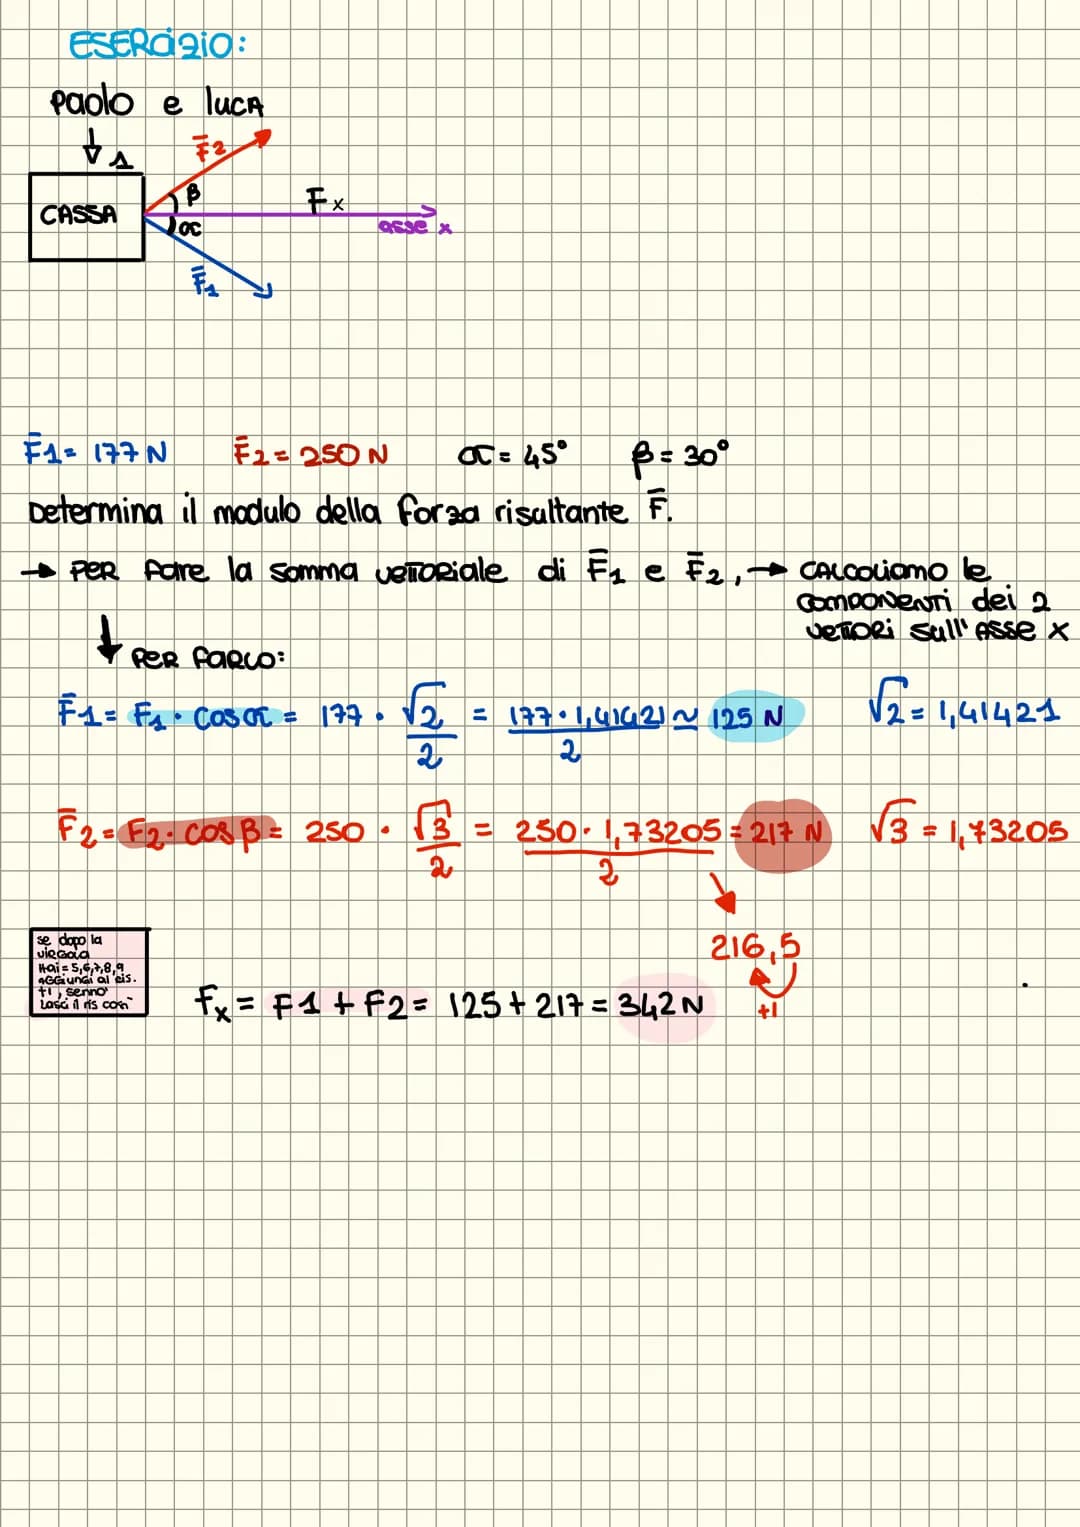 ESERCIZIO:
Paolo e luca
1
F̄2
β
Fx
CASSA
asse x
α
F̄1
F̄1 = 177 N F̄2 = 250 N α = 45° β = 30°
Determina il modulo della forza risultante F̄.
→ PER fare la somma vettoriale di F̄1 e F̄2, → CALCOLIAMO le
componenti dei 2
vettori sull'asse x
↓ PER farlo:
F̄1 = F1 · cos α = 177 · √2/2 = 177 · 1,41421/2 ≃ 125 N √2 = 1,41421
F̄2 = F2 · cos β = 250 · √3/2 = 250 · 1,73205/2 = 217 N √3 = 1,73205
216,5
+1
se dopo la
virgola
Hai = 5,6,7,8,9
aggiungi al ris.
+1, sennò
lasci il ris così
Fx = F1 + F2 = 125 + 217 = 342 N